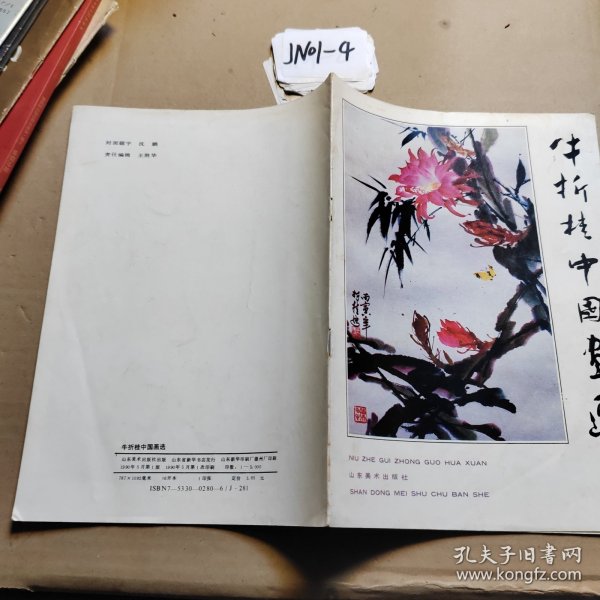 JN01-4
封面题字 沈 鹏
责任编辑 王胜华
牛折桂中国画选
山东美术出版社出版 山东省新华书店发行 山东新华印刷厂德州厂印刷
1990年5月第1版 1990年5月第1次印刷 印数:1—3,000
787×1092毫米 16开本 1印张 定价
ISBN7—5330—0280—6/J·281
牛折桂中国画选
丙寅年
折桂
NIU ZHE GUI ZHONG GUO HUA XUAN
山东美术出版社
SHAN DONG MEI SHU CHU BAN SHE
孔夫子旧书网
www.kongfz.com